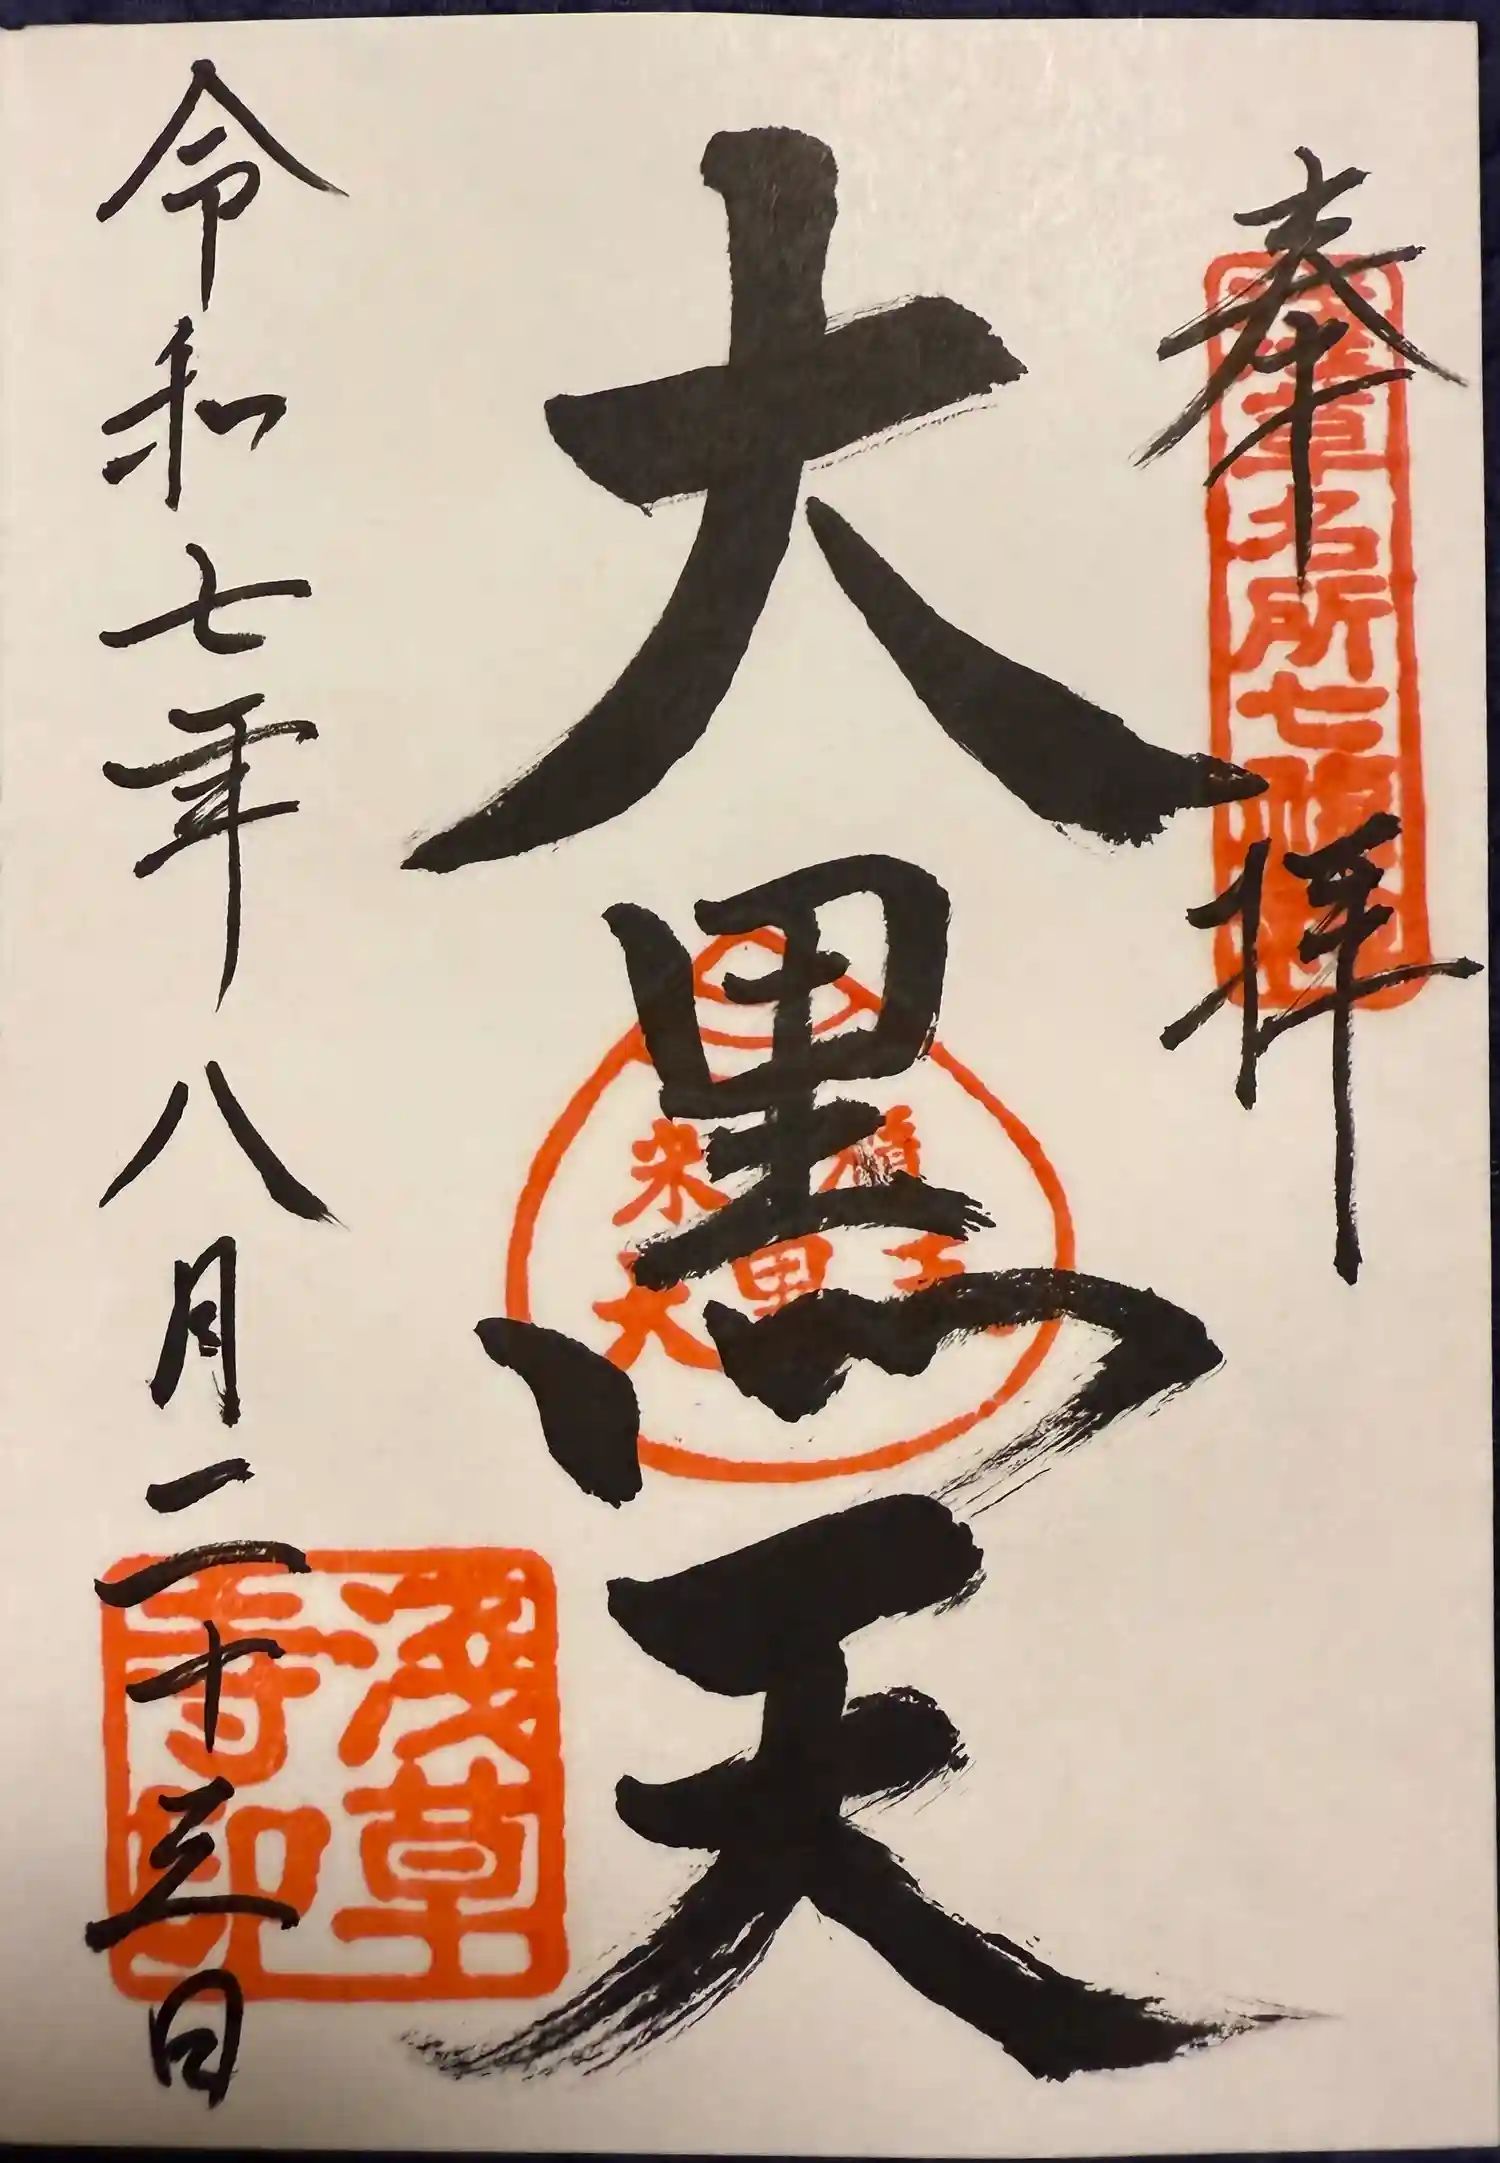 奉拝
浅草名所七福神
大黒天
米櫃
大黒天
令和七年八月二十三日
浅草
寺印